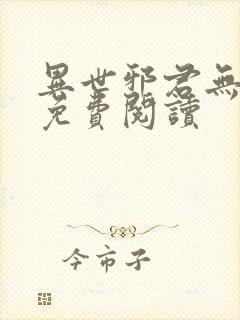 異世邪君無
免費閱讀
今市子